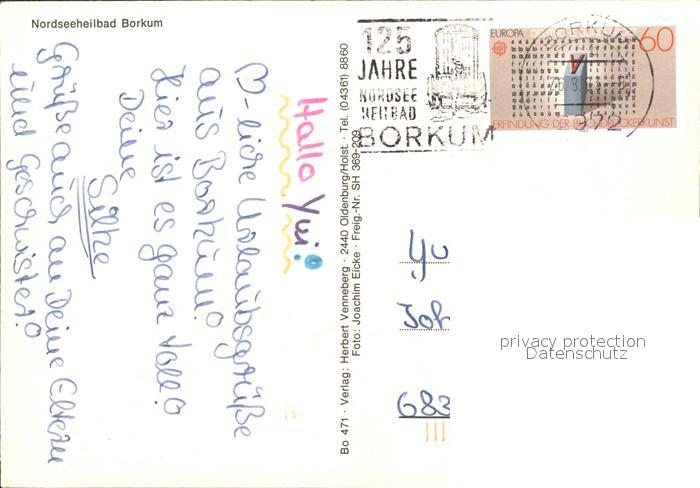 Nordseeheilbad Borkum
125
JAHRE
NORDSEE
HEILBAD
BORKUM
BORKUM
EUROPA
60
ERFINDUNG DER BUCHDRUCKERKUNST
Hallo Yvi!
♡-liche Urlaubsgrüße
aus Borkum!
Hier ist es ganz toll!
Deine
Silke
Grüße auch an Deine Eltern
und Geschwister!
Bo 471 · Verlag: Herbert Venneberg · 2440 Oldenburg/Holst. · Tel. (04361) 8860
Foto: Joachim Eicke · Freig.-Nr. SH 369-209
Joh
682
privacy protection
Datenschutz